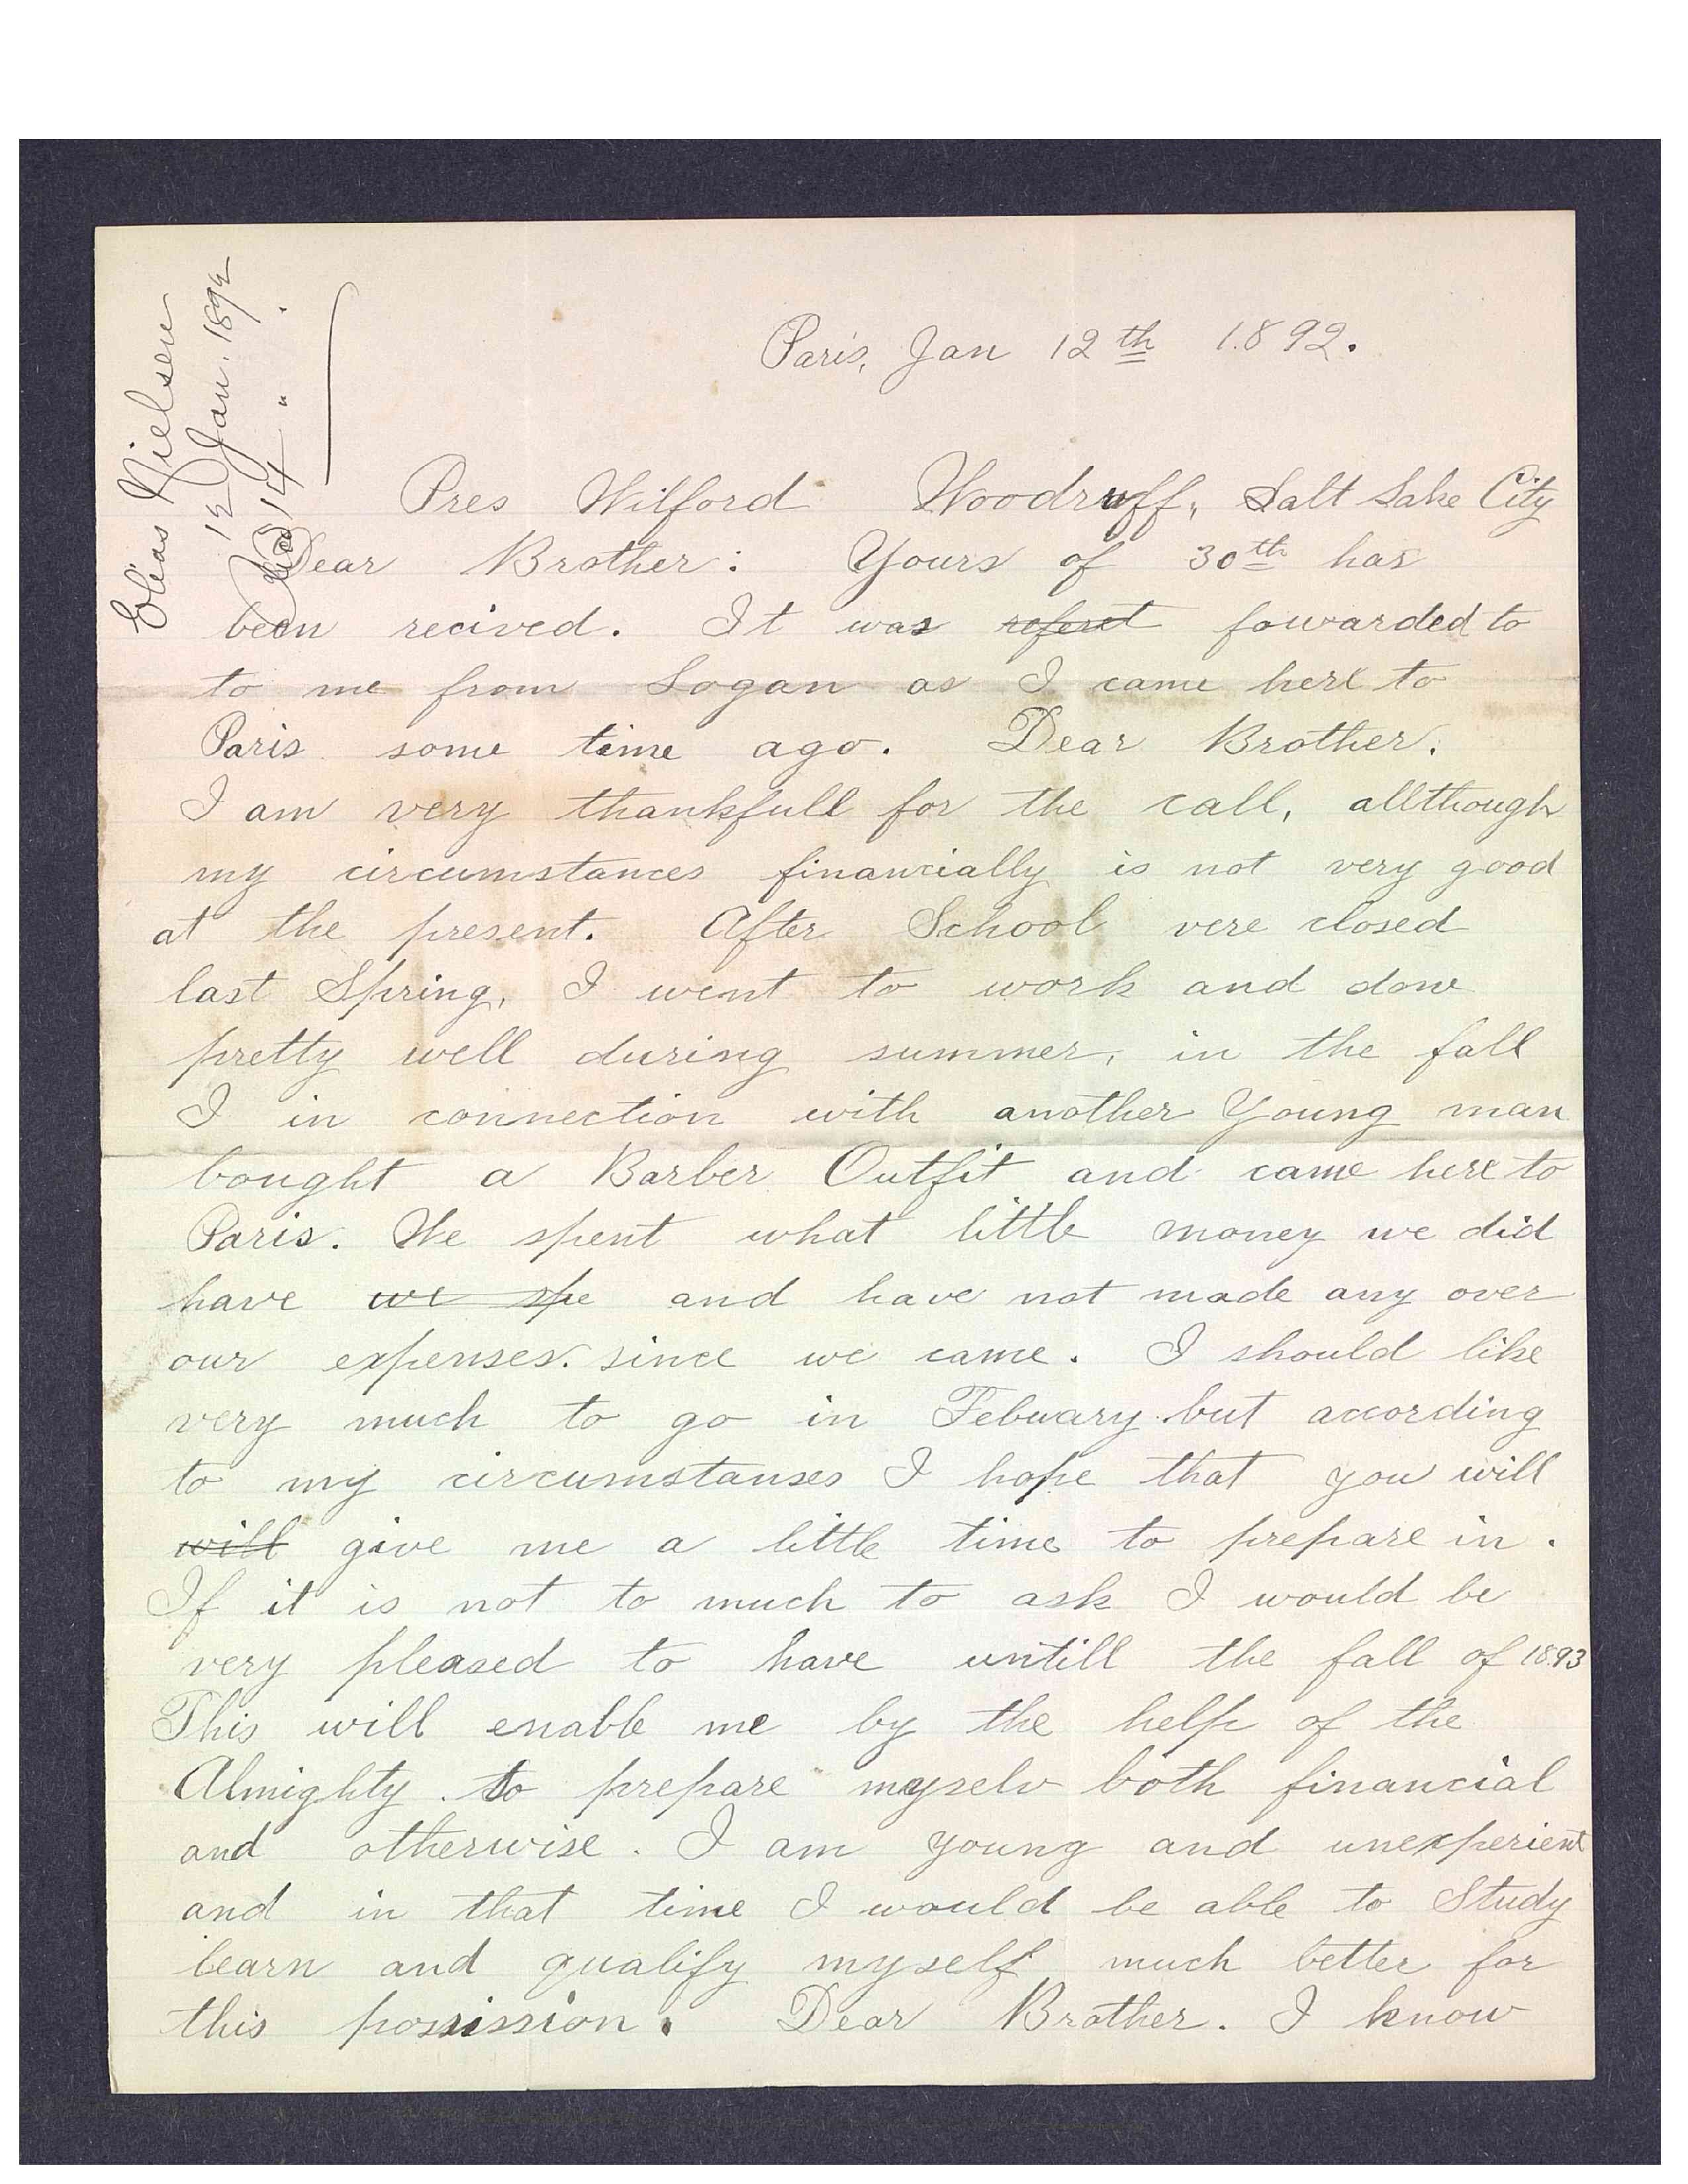 Elias Nielsen
12 Jan. 1892
Recd 14 " " .
Paris, Jan 12th 1892.
Pres Wilford Woodruff, Salt Lake City
Dear Brother: Yours of 30th has
been recived. It was refered fowarded to
to me from Logan as I came here to
Paris some time ago. Dear Brother.
I am very thankfull for the call, allthough
my circumstances financially is not very good
at the present. After School vere closed
last Spring, I went to work and done
pretty well during summer, in the fall
I in connection with another Young man
bought a Barber Outfit and came here to
Paris. We spent what little money we did
have we spe and have not made any over
our expenses. since we came. I should like
very much to go in Febuary but according
to my circumstanses I hope that you will
will give me a little time to prepare in.
If it is not to much to ask I would be
very pleased to have untill the fall of 1893
This will enable me by the help of the
Almighty to prepare myselv both financial
and otherwise. I am young and unexperient
and in that time I would be able to Study
learn and qualify myself much better for
this possission. Dear Brother. I know